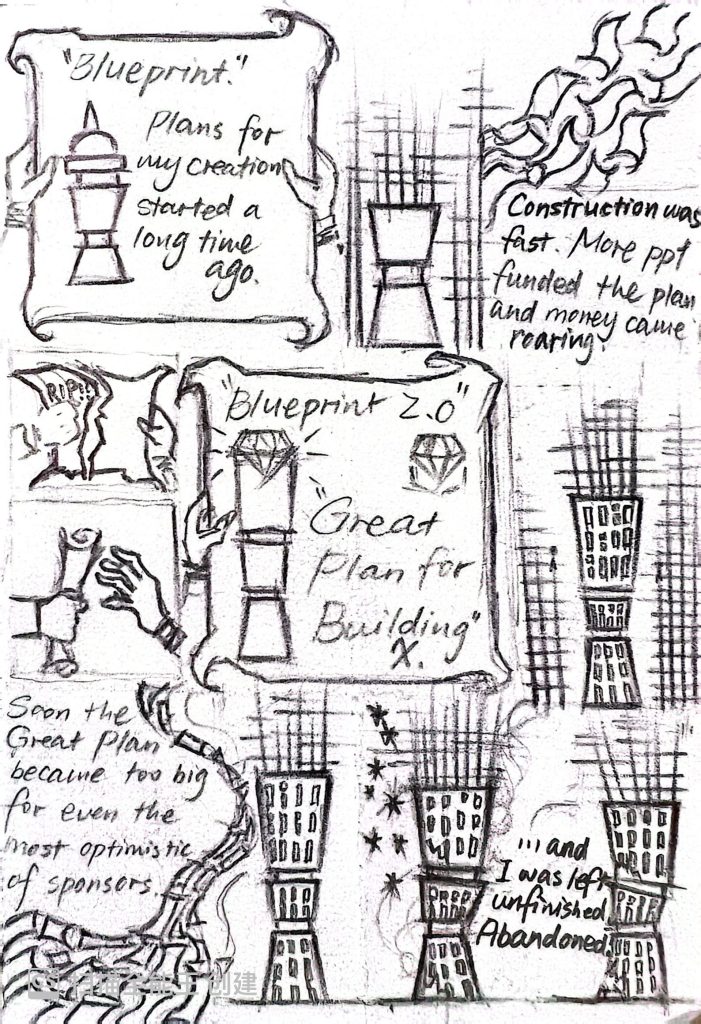 "Blueprint."
Plans for
my creation
started a
long time
ago.
Construction was
fast. More ppl
funded the plan
and money came
roaring.
RIP!!
"Blueprint 2.0"
"Great
Plan for
Building"
X.
Soon the
Great Plan
became too big
for even the
most optimistic
of sponsors.
...and
I was left
unfinished
Abandoned.
扫描全能王 创建